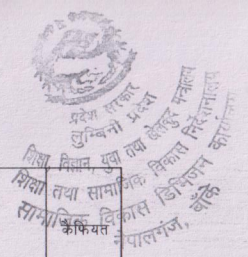 प्रदेश सरकार
लुम्बिनी प्रदेश
शिक्षा, विज्ञान, युवा तथा खेलकुद मन्त्रालय
शिक्षा तथा सामाजिक विकास निर्देशनालय
सामाजिक विकास डिभिजन कार्यालय
नेपालगंज, बाँके
कैफियत